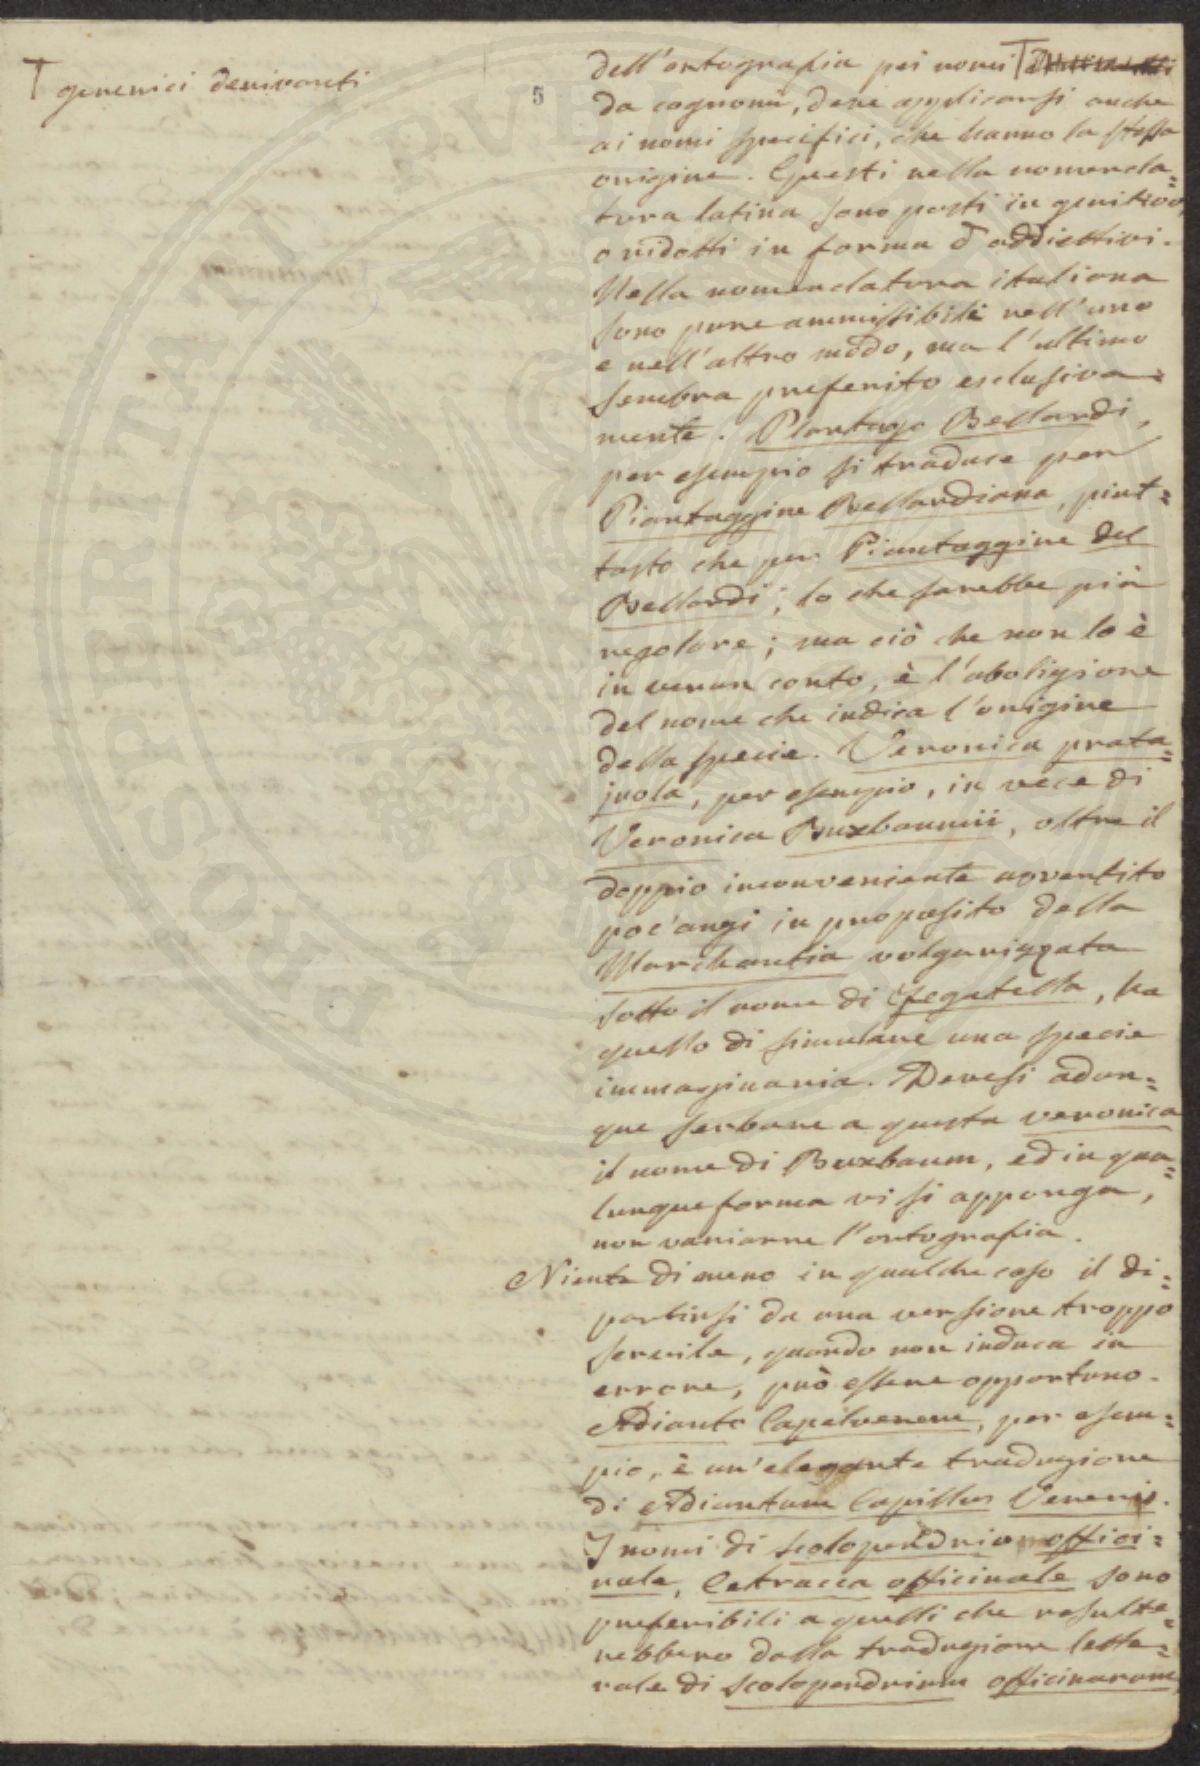 ⊤ generici derivanti
5
dell'ortografia pei nomi ⊤
da cognomi, deve applicarsi anche
ai nomi specifici, che hanno la stessa
origine. Questi nella nomencla=
tura latina sono posti in genitivo,
o ridotti in forma d'addiettivi.
Nella nomenclatura italiana
sono pure ammissibili nell'uno
e nell'altro modo, ma l'ultimo
sembra preferito esclusiva=
mente. Plantago Bellardi,
per esempio si traduce per
Piantaggine Bellardiana, piut=
tosto che per Piantaggine del
Bellardi; lo che sarebbe più
regolare; ma ciò che non lo è
in verun conto, è l'abolizione
del nome che indica l'origine
della specie. Veronica prata=
juola, per esempio, in vece di
Veronica Buxbaumii, oltre il
doppio inconveniente avvertito
poc'anzi in proposito della
Marchantia volgarizzata
sotto il nome di fegatella, ha
quello di simulare una specie
immaginaria. Devesi adun=
que serbare a questa veronica
il nome di Buxbaum, ed in qua=
lunque forma vi si apponga,
non variarne l'ortografia.
Niente di meno in qualche caso il di=
partirsi da una versione troppo
servile, quando non induca in
errore, può essere opportuno.
Adianto Capelvenere, per esem=
pio, è un'elegante traduzione
di Adiantum Capillus Veneris.
I nomi di scolopendrio offici=
nale, Cetracca officinale sono
preferibili a quelli che resulte=
rebbero dalla traduzione lette=
rale di scolopendrium officinarum,
PROSPERITATI PUBLICAE